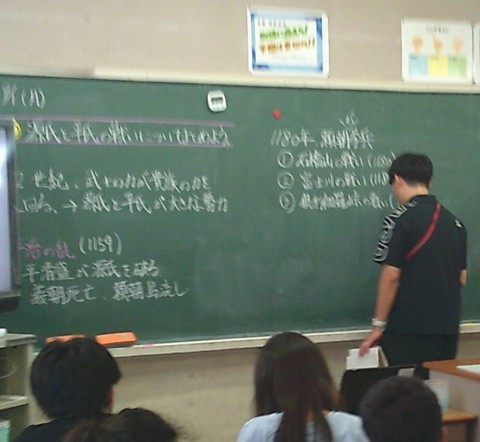 (月)
源氏と平氏の戦いについてまとめよう
世紀、武士の力が貴族の力を
上回る。→ 源氏と平氏が大きな勢力
治の乱 (1159)
平清盛が源氏を破る
義朝死亡、頼朝島流し
1180年 頼朝挙兵
① 石橋山の戦い(1180)
② 富士川の戦い(118
③ 倶利伽羅峠の戦い(